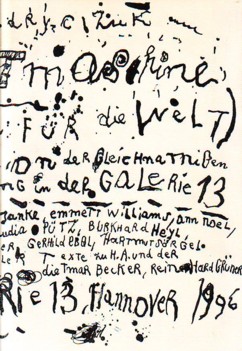 maschine
FÜR die WELT)
on der gleichnamigen
NG in der GALERIE 13
Janke, emmett williams, ann noel,
udia PÜTZ, BURKHARD HEYL,
GERHILD EBEL, HARTMUT SÖRGEL
Texte zu H.A. und der
dietmar BECKER, REINHARD GRÜNER
RIE 13, Hannover 1996